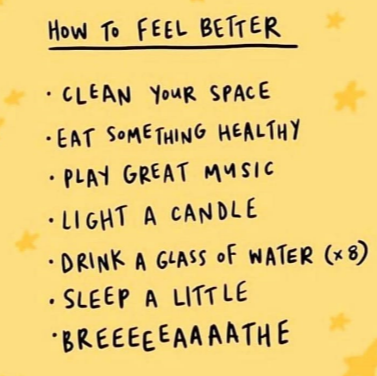 HOW TO FEEL BETTER
· CLEAN YOUR SPACE
· EAT SOMETHING HEALTHY
· PLAY GREAT MUSIC
· LIGHT A CANDLE
· DRINK A GLASS OF WATER (x8)
· SLEEP A LITTLE
· BREEEEEAAAATHE